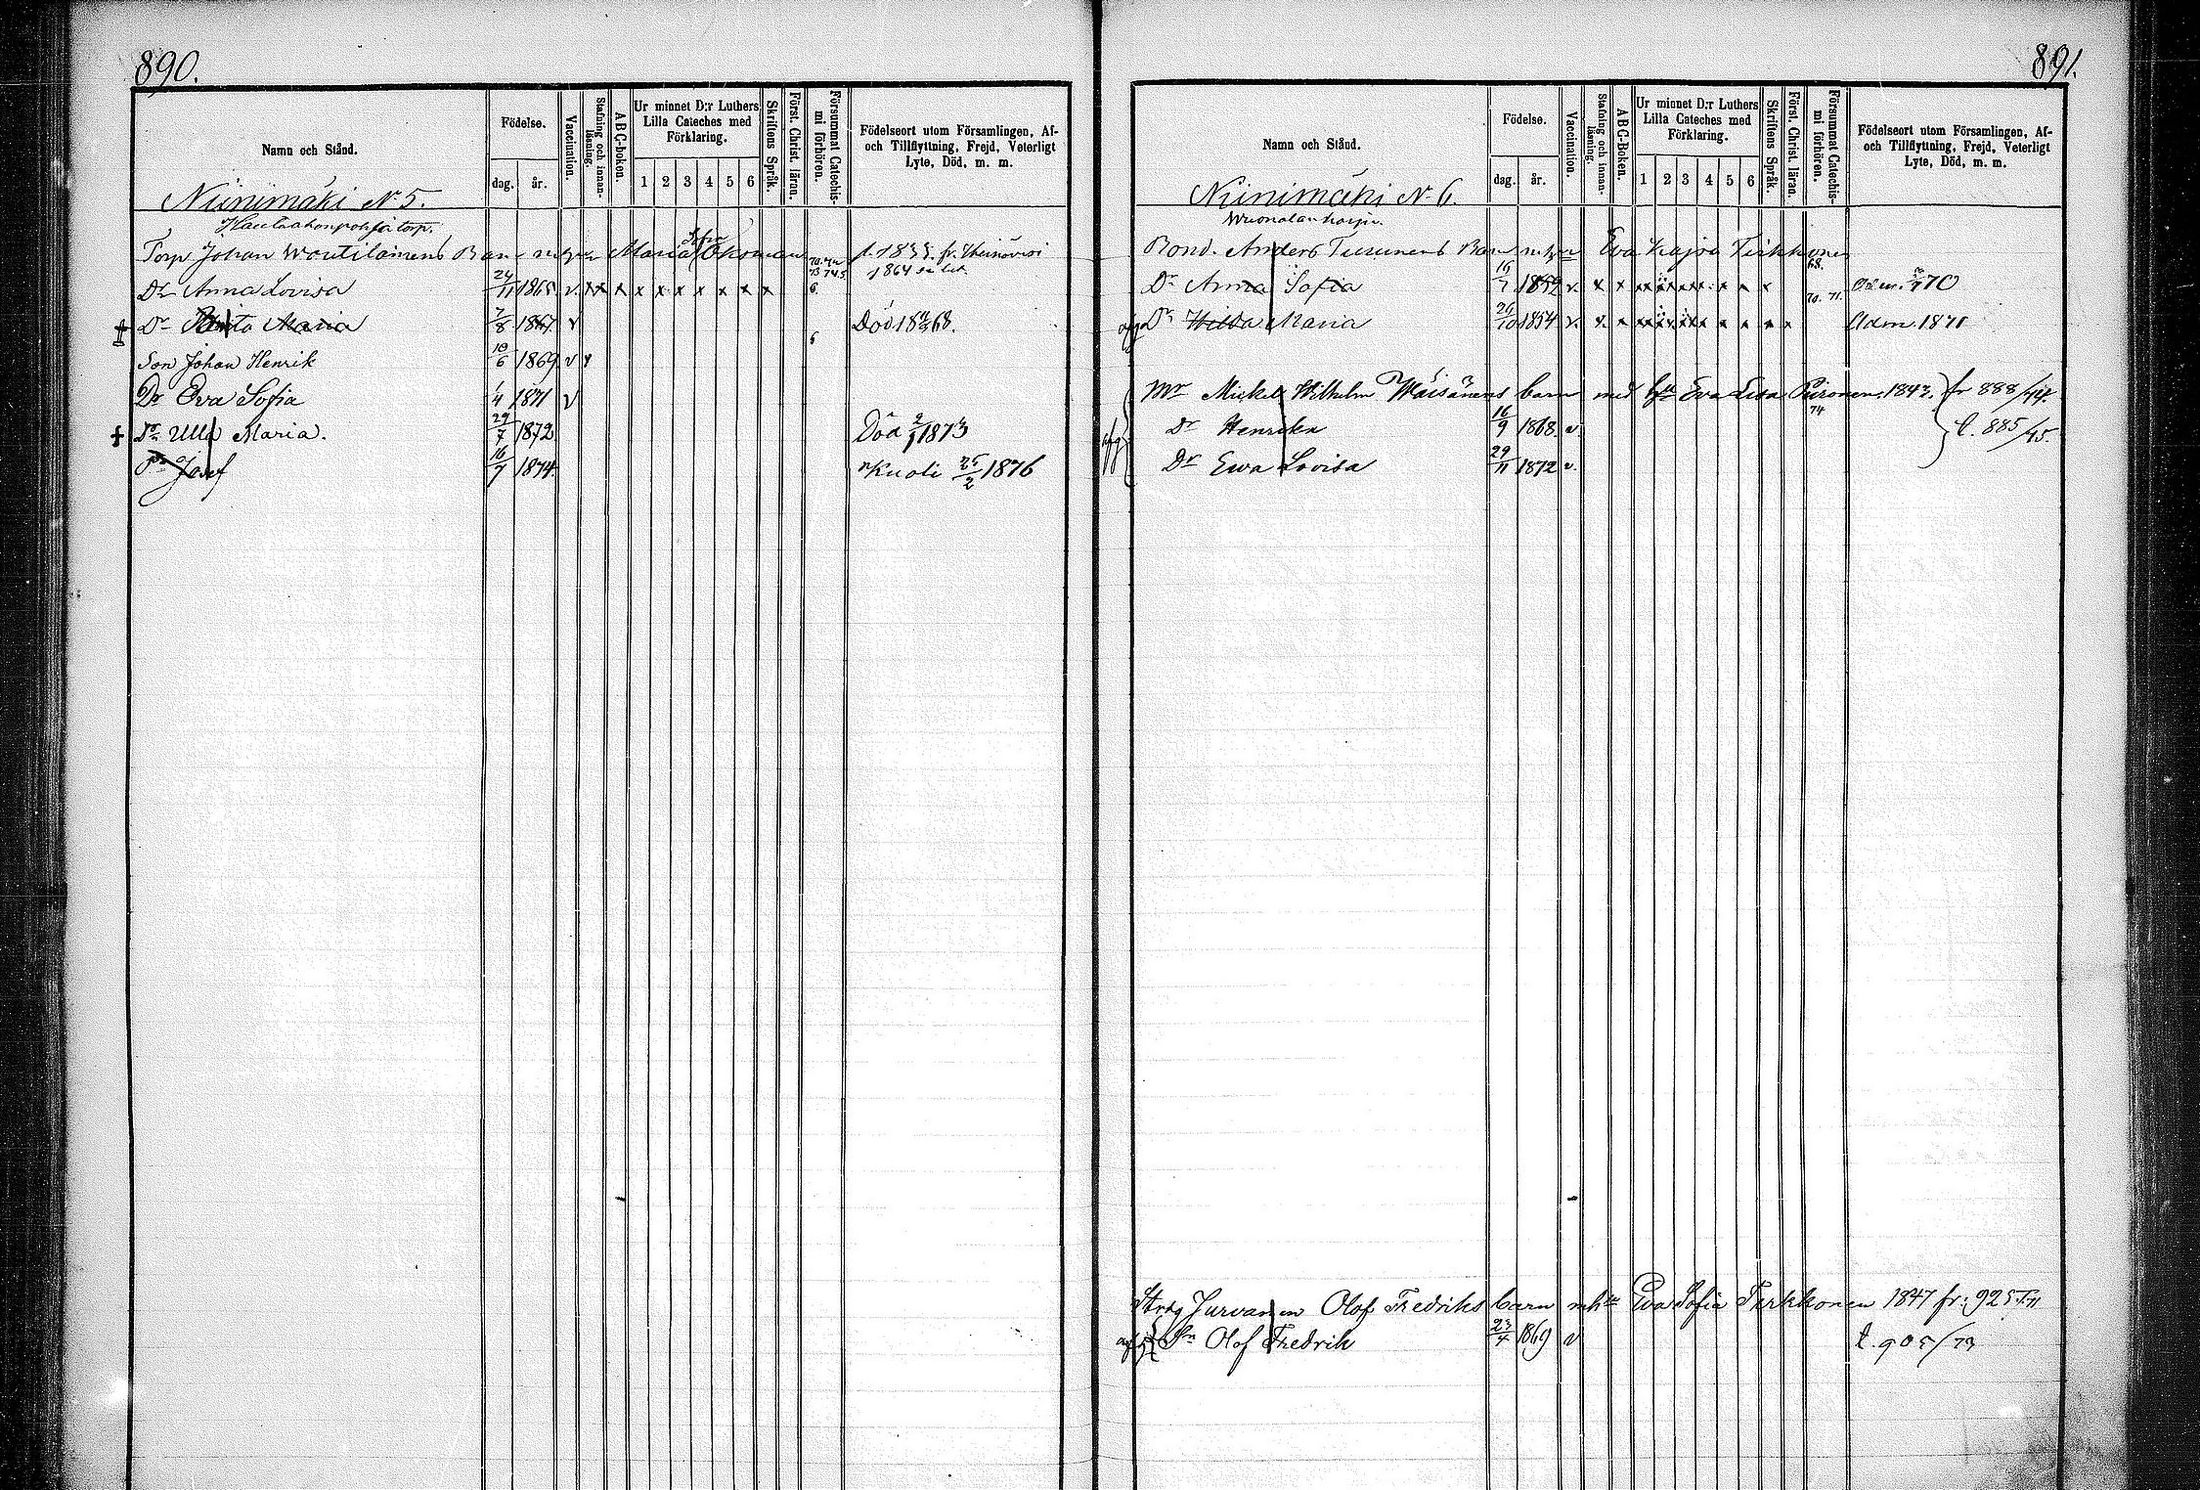 890.
Namn och Stånd.
Födelse.
dag. år.
Vaccination.
Stafning och innanläsning.
ABC-boken.
Ur minnet D:r Luthers Lilla Cateches med Förklaring.
1 2 3 4 5 6
Skriftens Språk.
Först. Christ. läran.
Försummat Catechismi förhören.
Födelseort utom Församlingen, Af- och Tillflyttning, Frejd, Veterligt Lyte, Död, m. m.
Niinimäki No 5.
Torp Johan Woutilainens Barn m. hu Maria Sofia
Dr Anna Lovisa 24/11 1865. v. x x x x x x x x x x 6.
Dr Maria 7/8 1867 v Död 68.
Son Johan Henrik 18/6 1869 v
Dr Eva Sofia 1/4 1871 v
Dr Ulla Maria. 29/7 1872 Död 2/1 1873
Josef 16/7 1874. Kuoli 25/2 1876
891.
Namn och Stånd.
Födelse.
dag. år.
Vaccination.
Stafning och innanläsning.
ABC-Boken.
Ur minnet D:r Luthers Lilla Cateches med Förklaring.
1 2 3 4 5 6
Skriftens Språk.
Först. Christ. läran.
Försummat Catechismi förhören.
Födelseort utom Församlingen, Af- och Tillflyttning, Frejd, Veterligt Lyte, Död, m. m.
Niinimäki No 6.
Bond. Anders Turunens Barn m. hu Eva Kajsa Tirkkonen
Dr Anna Sofia 16/7 1852 v. 70
Dr Hilda Maria 26/10 1854 v. 70. 71. Adm. 1871
Mickel Wilhelm Wäisänens barn med hu Eva Lisa Piironen 1843. fr 888/74.
Dr Henrika 16/9 1868. v. t. 885/75.
Dr Ewa Lovisa 29/11 1872 v.
Jurvanen Olof Fredriks barn mhu Eva Sofia Tirkkonen 1847 fr: 925
Sn Olof Fredrik 23/4 1869 v t. 905/73